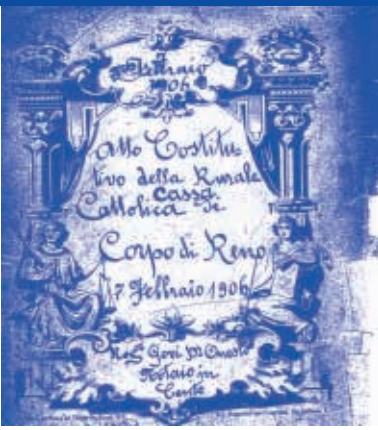 Febbraio
1906
Atto Costitu
tivo della Rurale
Cassa
Cattolica di
Corpo di Reno
17 Febbraio 1906
Govi
Notaio in
Cento